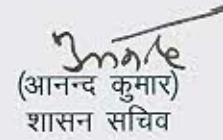 (आनन्द कुमार)
शासन सचिव